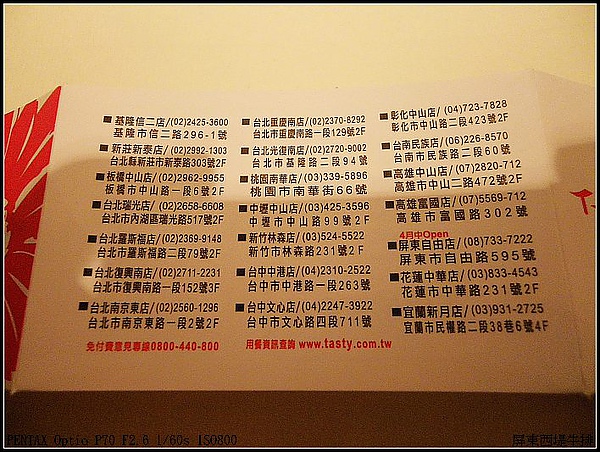 ■基隆信二店/(02)2425-3600
基隆市信二路296-1號
■新莊新泰店/(02)2992-1303
台北縣新莊市新泰路303號2F
■板橋中山店/(02)2962-9955
板橋市中山路一段6號2F
■台北瑞光店/(02)2658-6608
台北市內湖區瑞光路517號2F
■台北羅斯福店/(02)2369-9148
台北市羅斯福路二段79號2F
■台北復興南店/(02)2711-2231
台北市復興南路一段152號3F
■台北南京東店/(02)2560-1296
台北市南京東路一段2號2F
免付費意見專線0800-440-800
■台北重慶南店/(02)2370-8292
台北市重慶南路一段129號2F
■台北光復南店/(02)2720-9002
台北市基隆路二段94號
■桃園南華店/(03)339-5896
桃園市南華街66號
■中壢中山店/(03)425-3596
中壢市中山路99號2F
■新竹林森店/(03)524-5522
新竹市林森路231號2F
■台中中港店/(04)2310-2522
台中市中港路一段263號
■台中文心店/(04)2247-3922
台中市文心路四段711號
用餐資訊查詢 www.tasty.com.tw
■彰化中山店/(04)723-7828
彰化市中山路二段423號2F
■台南民族店/(06)226-8570
台南市民族路二段60號
■高雄中山店/(07)2820-712
高雄市中山二路472號2F
■高雄富國店/(07)5569-712
高雄市富國路302號
4月中Open
■屏東自由店/(08)733-7222
屏東市自由路595號
■花蓮中華店/(03)833-4543
花蓮市中華路231號2F
■宜蘭新月店/(03)931-2725
宜蘭市民權路二段38巷6號4F
PENTAX Optio P70 F2.6 1/60s ISO800
屏東西堤牛排